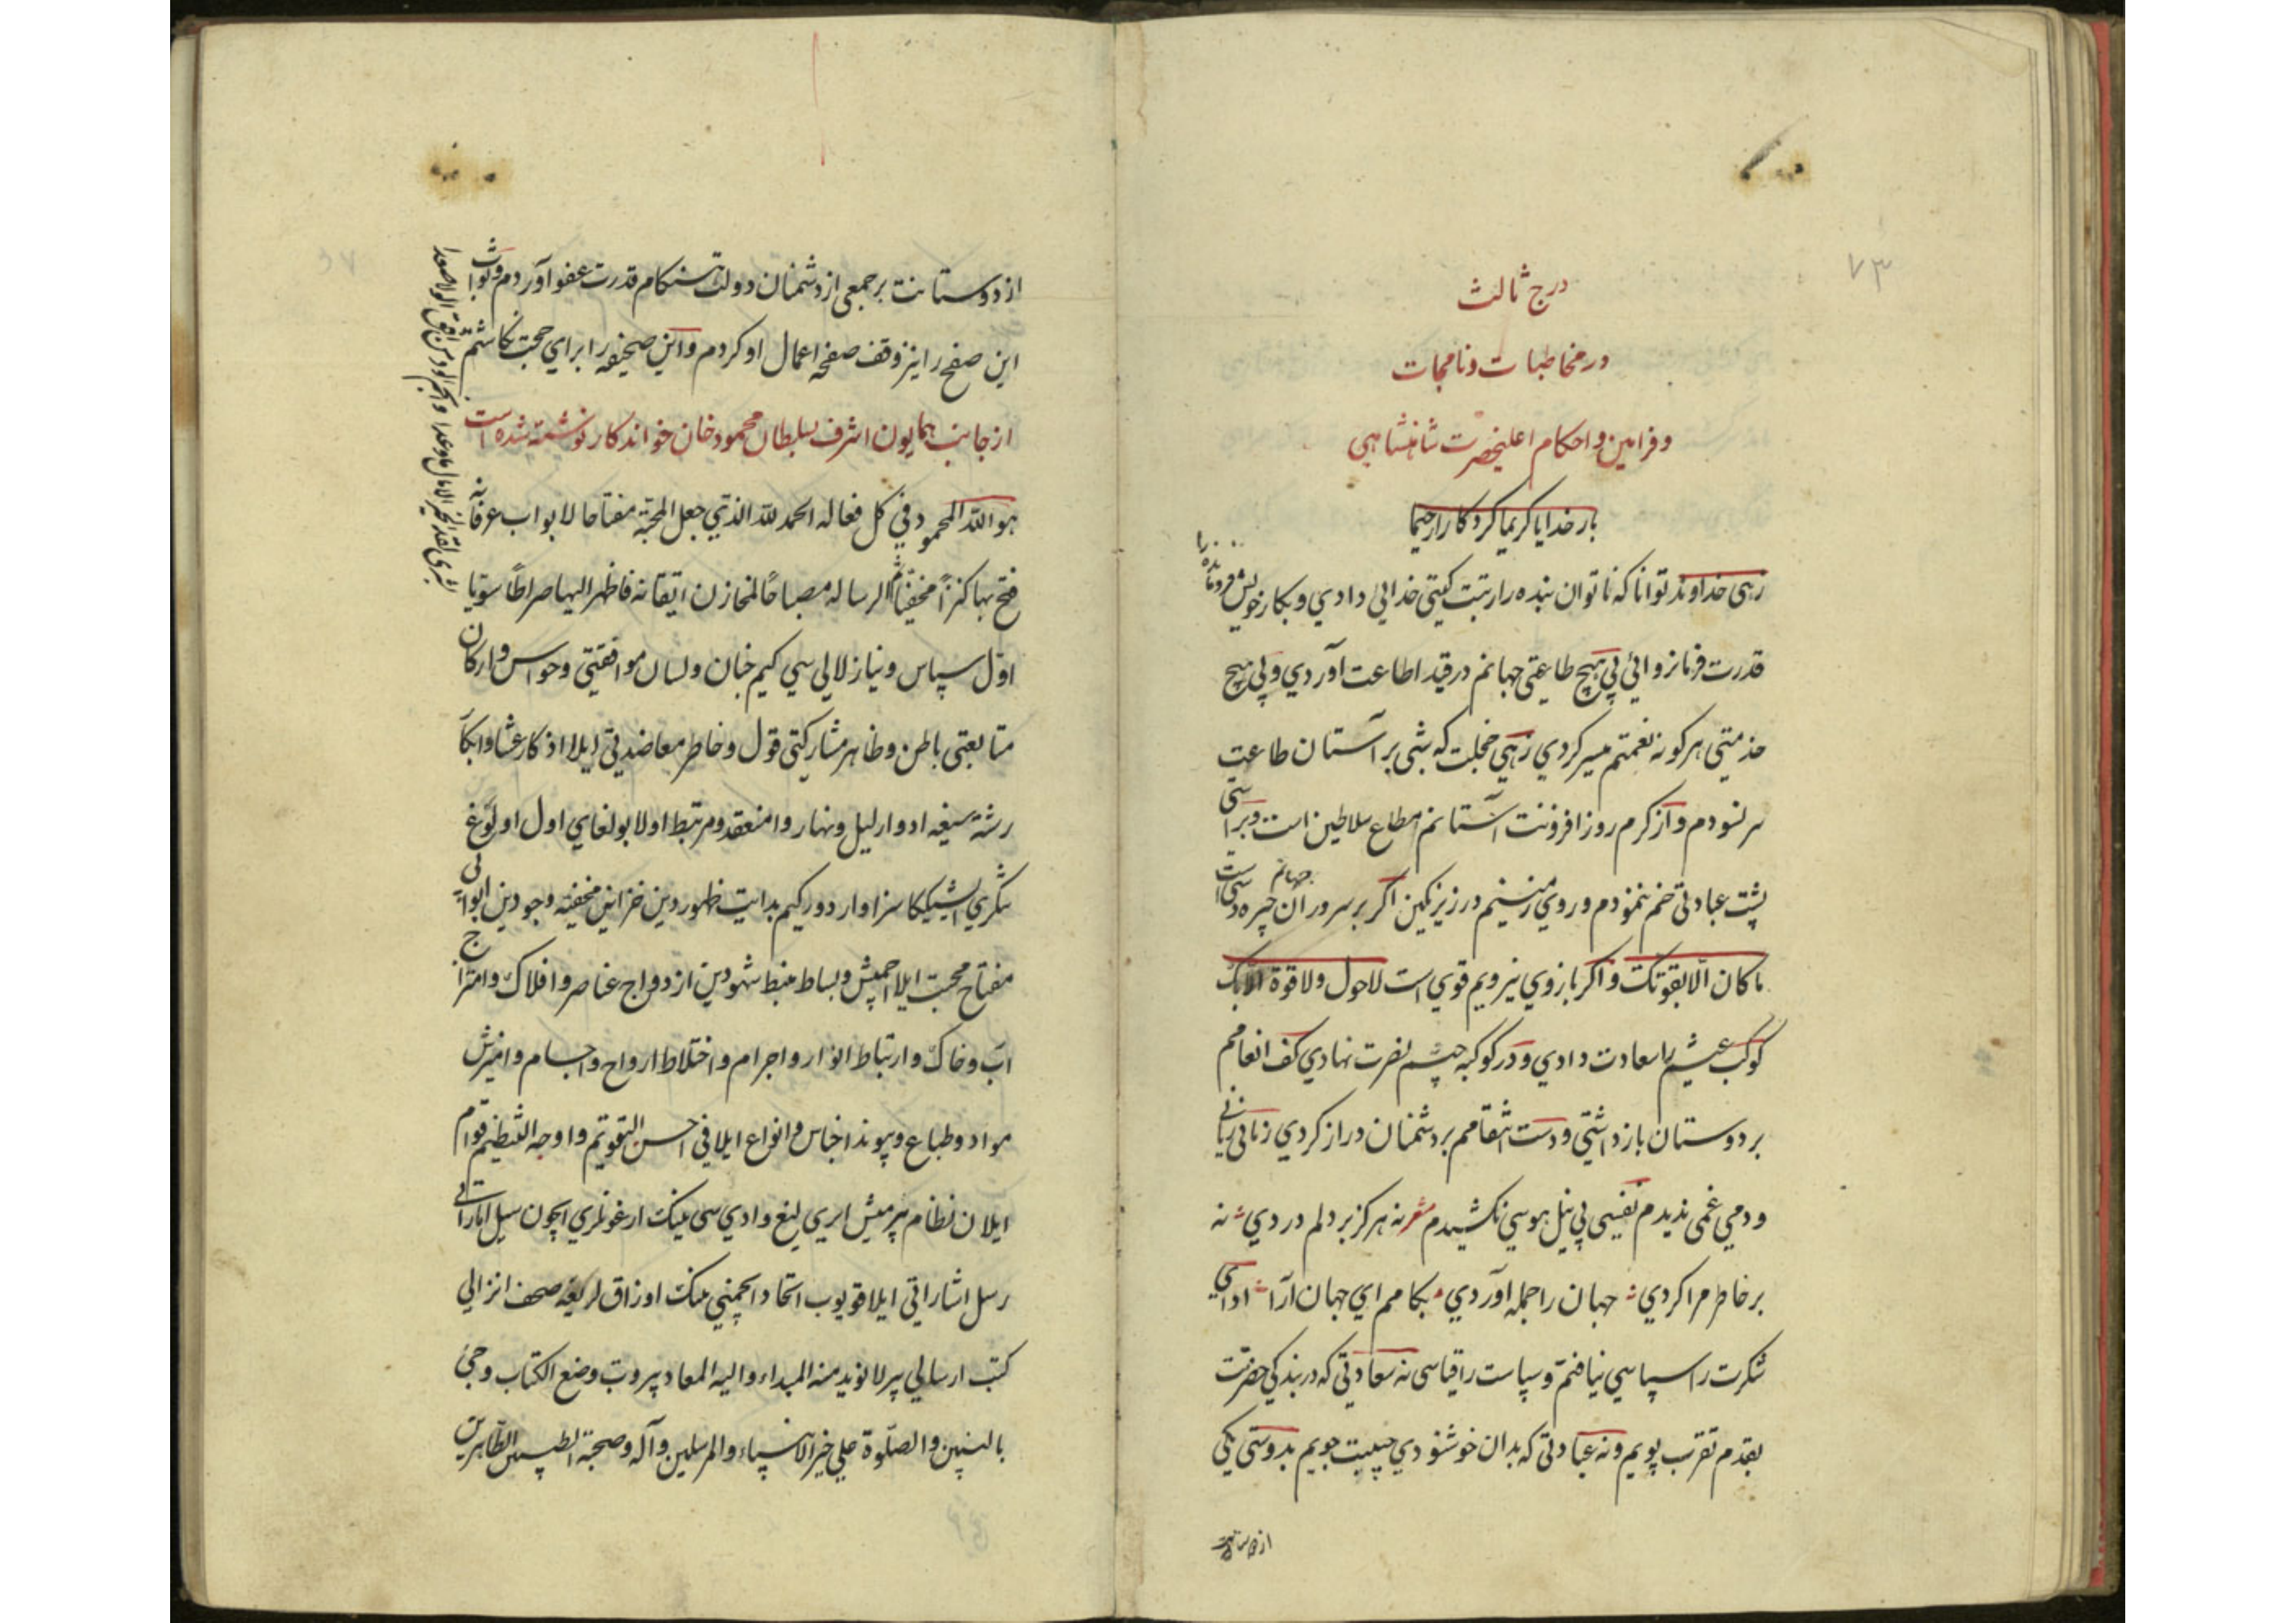 ۷۳
درج ثالث
در مخاطبات و نامجات
و فرامین و احکام اعلیحضرت شاهنشاهی
بار خدایا کریما کردکارا رحیما
زهی خداوند توانا که ناتوان بنده را رتبت کیتی خدائی دادی و بکار خویش فرومانده را
قدرت فرمانروائی بی هیچ طاعتی جهانم در قید اطاعت آوردی و بی هیچ
خدمتی هرکونه نعمتم میسر کردی زهی خجلت که شبی بر آستان طاعت
سر نسودم و از کرم روز افزونت آستانم مطاع سلاطین است و براستی
پشت عبادتی خم ننمودم و روی زمینم در زیر نکین اکر بر سروران جهانم چیره دستی است
ما کان الا بقوتک و اکر بازوی نیرویم قوی است لا حول و لا قوة الا بک
کوکب عیشم را سعادت دادی و در کوکبه جیشم نصرت نهادی کف انعامم
بر دوستان باز داشتی و دست انتقامم بر دشمنان دراز کردی زمانی بی
و دمی غمی ندیدم نفسی بی نیل هوسی نکشیدم شعر نه هرکز بر دلم دردی نه
بر خاطر مرا کردی جهان را جمله آوردی بکامم ای جهان آرا ادای
شکرت را سپاسی نیافتم و سپاست را قیاسی نه سعادتی که در بندکی حضرتت
بقدم تقرب پویم و نه عبادتی که بدان خوشنودی جویم بدوستی یکی
از دوستانت
از دوستانت بر جمعی از دشمنان دولت هنکام قدرت عفو آوردم و ثواب
این صفح را نیز وقف صفحه اعمال او کردم و این صحیفه را برای حجت نکاشتم
از جانب همایون اشرف بسلطان محمود خان خواندکار نوشته شده است
هو الله المحمود فی کل فعاله الحمد لله الذی جعل المحبة مفتاحا لابواب عرفانه
فتح بها کنزاً مخفیاً ثم الرساله مصباحاً لمخازن ایقانه فاظهر الیها صراطاً سویا
اول سپاس و نیاز لایی سی کیم جنان و لسان موافقتی و حواس و ارکان
متابعتی باطن و ظاهر مشارکتی قول و خاطر معاضدتی ایلا اذکار عشا و ابکار
رشته سیغه ادوار لیل و نهار وا منعقد و مرتبط اولا بولغای اول اولوغ
تنکری ایشیکیکا سزاوار دور کیم بدایت ظهوردین خزاین مخفیه وجودین ابوابی
مفتاح محبت ایلا اچمیش و بساط منبسط شهودین ازدواج عناصر و افلاک و امتزاج
آب و خاک و ارتباط انوار و اجرام و اختلاط ارواح و اجسام و امیزش
مواد و طباع و پیوند اجناس و انواع ایلا فی احسن التقویم و اوجه التنظیم قوام
ایلان نظام بیرمیش
رسل اشاراتی ایلا قویوب اتحاد انجمنی
کتب ارسالی بیرلا نوید منه المبداء و الیه المعاد بیروب وضع الکتاب و جئ
بالنبیین و الصلوة علی خیر الانبیاء و المرسلین و آله و صحبه الطیبین الطاهرین